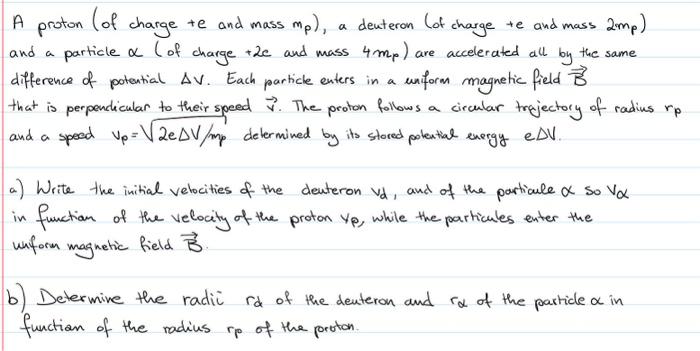 A proton (of charge +e and mass mp), a deuteron (of charge +e and mass 2mp)
and a particle α (of charge +2e and mass 4mp) are accelerated all by the same
difference of potential ΔV. Each particle enters in a uniform magnetic field B⃗
that is perpendicular to their speed v⃗. The proton follows a circular trajectory of radius rp
and a speed vp = √2eΔV/mp determined by its stored potential energy eΔV.
a) Write the initial velocities of the deuteron vd, and of the particule α so Vα
in function of the velocity of the proton vp, while the particules enter the
uniform magnetic field B⃗.
b) Determine the radii rd of the deuteron and rα of the particle α in
function of the radius rp of the proton.